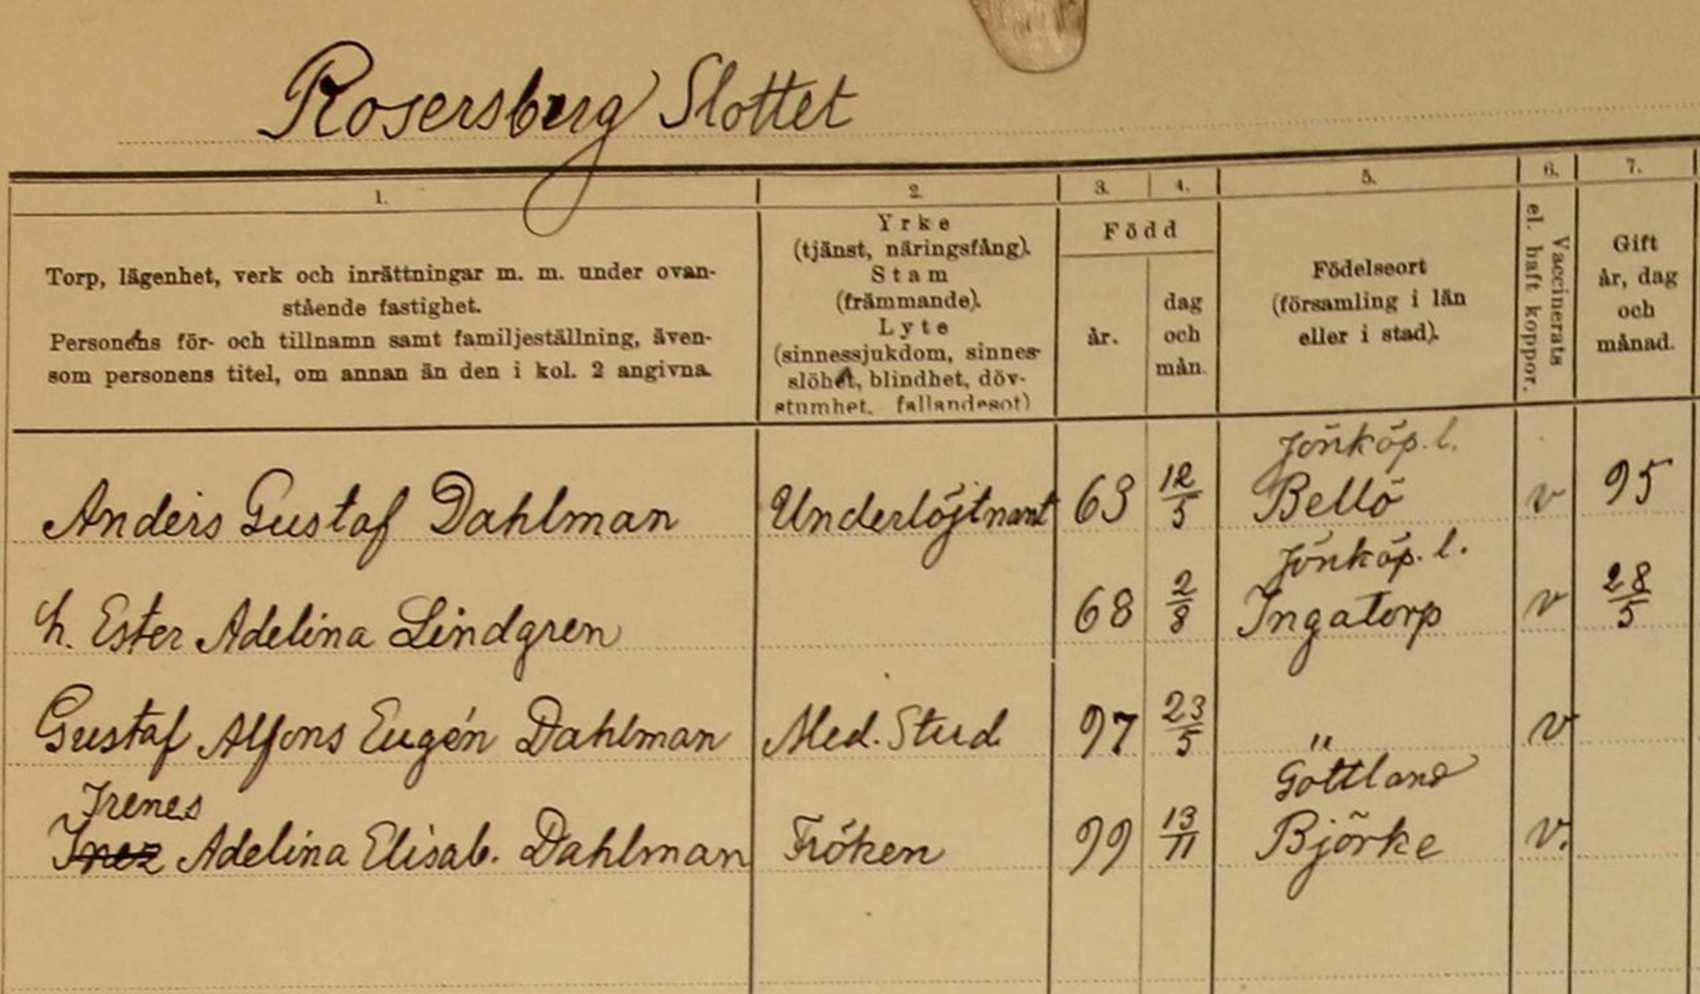 Rosersberg Slottet
1. 2. 3. 4. 5. 6. 7.
Torp, lägenhet, verk och inrättningar m. m. under ovan-
stående fastighet.
Personens för- och tillnamn samt familjeställning, även-
som personens titel, om annan än den i kol. 2 angivna.
Yrke
(tjänst, näringsfång).
Stam
(främmande).
Lyte
(sinnessjukdom, sinnes-
slöhet, blindhet, döv-
stumhet, fallandesot)
Född
år.
dag
och
mån.
Födelseort
(församling i län
eller i stad).
Vaccinerats
el. haft koppor.
Gift
år, dag
och
månad.
Jönköp. l.
Anders Gustaf Dahlman Underlöjtnant 63 12/5 Bellö v 95
Jönköp. l.
h. Ester Adelina Lindgren 68 2/8 Ingatorp v 28/5
Gustaf Alfons Eugén Dahlman Med. Stud 97 23/5 " v
Irenes Gottland
Inez Adelina Elisab. Dahlman Fröken 99 13/11 Björke v.